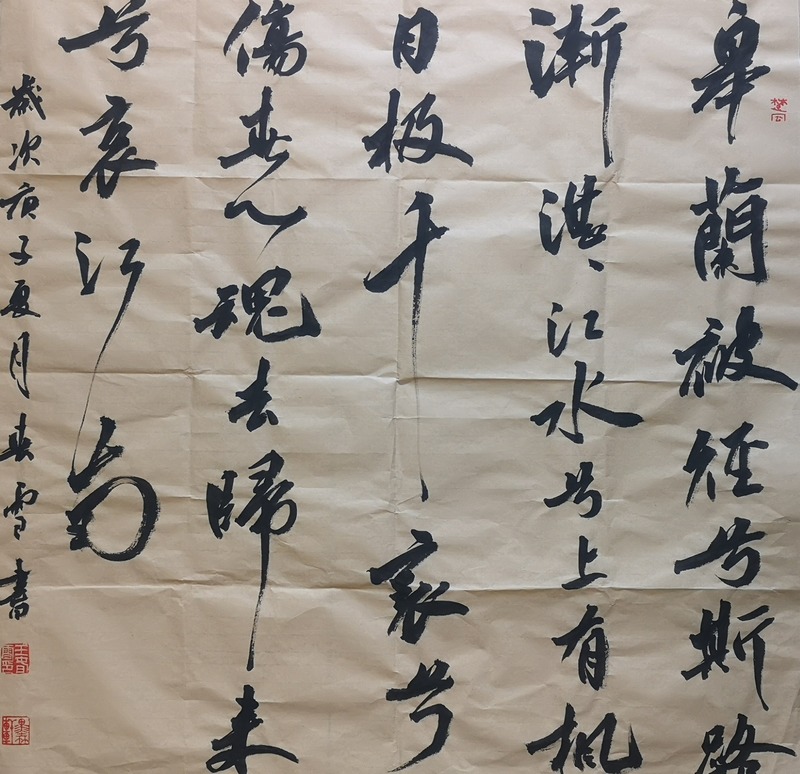 皋蘭被徑兮斯路
漸湛、江水兮上有楓
目極千裏兮
傷春心魂去歸来
兮哀江南
歲次庚子夏月春雪書